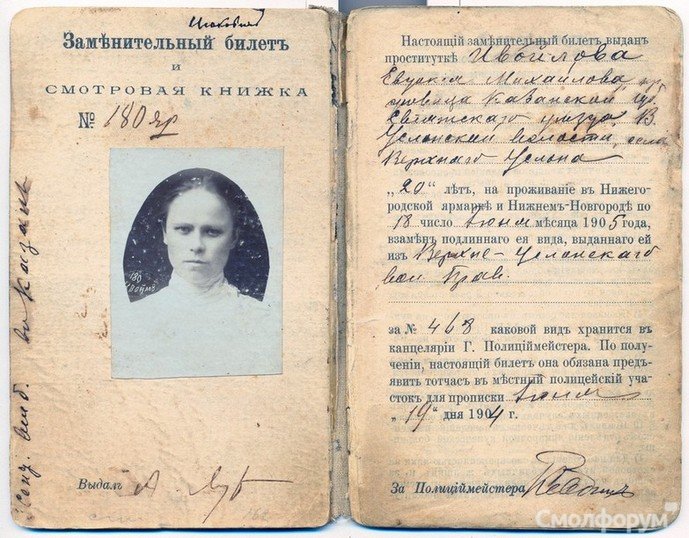 Замѣнительный билетъ
и
СМОТРОВАЯ КНИЖКА
№ 180 яр
180
Выдалъ
вѣ Казань
Настоящій замѣнительный билетъ выданъ
проституткѣ Ивойлова
Евдокія Михайлова, кр
Казанской губ.
Свіяжского уѣзда, В.
Услонской волости, села
Верхняго Услона
„20“ лѣтъ, на проживаніе въ Нижего-
родской ярмаркѣ и Нижнемъ-Новгородѣ по
18 число Іюня мѣсяца 1905 года,
взамѣнъ подлиннаго ея вида, выданнаго ей
изъ Верхне-Услонскаго
вол Прав.
за № 468 каковой видъ хранится въ
канцеляріи Г. Полиціймейстера. По полу-
ченіи, настоящій билетъ она обязана предъ-
явить тотчасъ въ мѣстный полицейскій уча-
стокъ для прописки Іюня
„19“ дня 1904 г.
За Полиціймейстера
Смолфорум